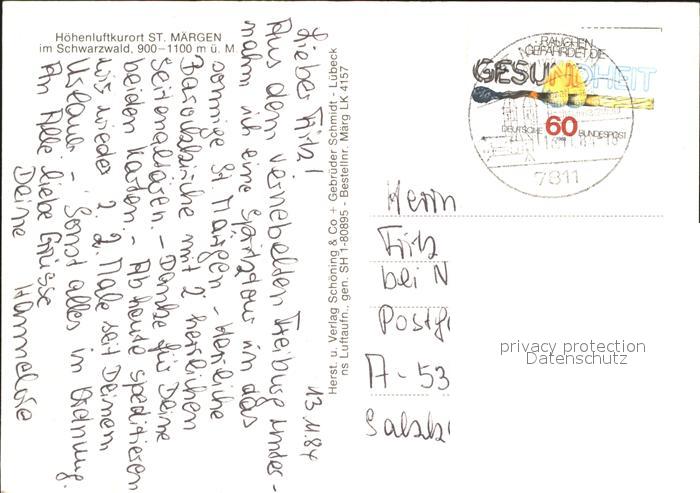 Höhenluftkurort ST. MÄRGEN
im Schwarzwald, 900–1100 m ü. M
13.11.84
Lieber Fritz!
Aus dem vernebelten Freiburg unter-
nahm ich eine Spritztour in das
sonnige St. Märgen - Herrliche
Barockkirche mit 2 herrlichen
Seitenaltären. - Danke für Deine
beiden Karten. - Ab heute speditieren
wir wieder z. 2. Male seit Deinem
Urlaub - Sonst alles in Ordnung.
An Alle liebe Grüsse
Deine Hannelore
Herst. u. Verlag Schöning & Co + Gebrüder Schmidt - Lübeck
ns Luftaufn., gen. SH 1-80895 - Bestellnr. Märg LK 4157
RAUCHEN
GEFÄHRDET DIE
GESUNDHEIT
DEUTSCHE 60 BUNDESPOST
7811
Herrn
Fritz
bei N
Postf
A-53
Salzb
privacy protection
Datenschutz